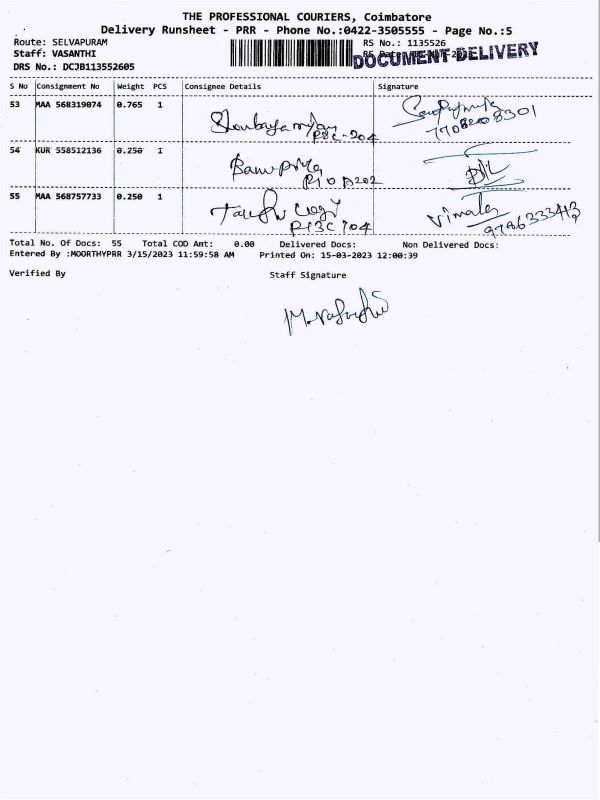 THE PROFESSIONAL COURIERS, Coimbatore
Delivery Runsheet - PRR - Phone No.:0422-3505555 - Page No.:5
Route: SELVAPURAM RS No.: 1135526
Staff: VASANTHI DOCUMENT DELIVERY
DRS No.: DCJB113552605
S No Consignment No Weight PCS Consignee Details Signature
53 MAA 568319074 0.765 1
7708208301
54 KUR 558512136 0.250 1 Banupriya
55 MAA 568757733 0.250 1 Vimala
9786333413
Total No. Of Docs: 55 Total COD Amt: 0.00 Delivered Docs: Non Delivered Docs:
Entered By :MOORTHYPRR 3/15/2023 11:59:58 AM Printed On: 15-03-2023 12:00:39
Verified By Staff Signature